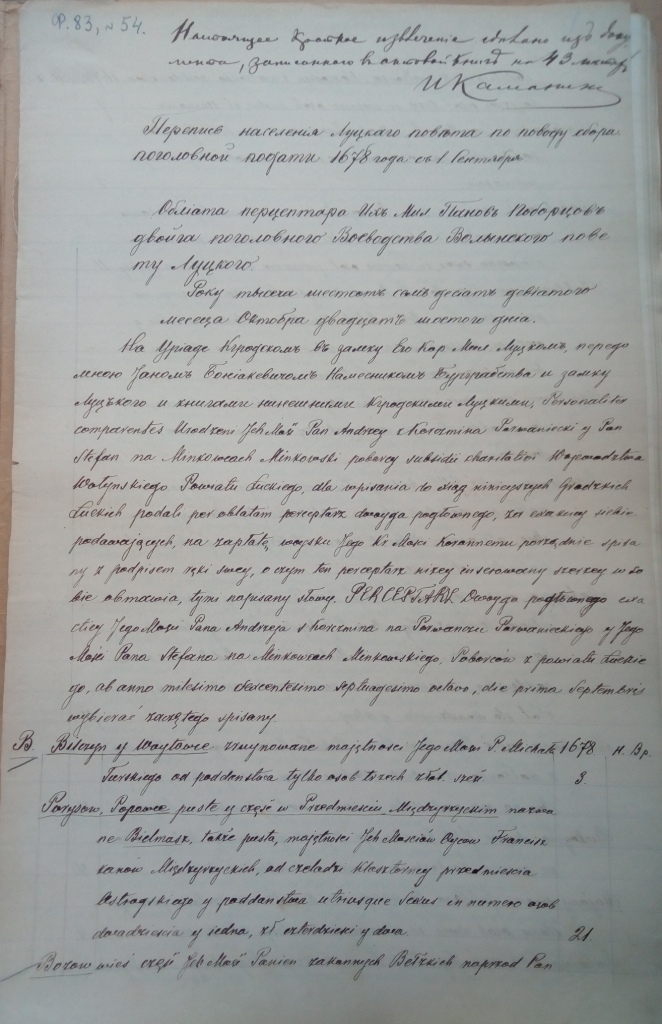 Ф. 83, № 54.
Настоящее краткое извлечение сделано изъ доку
мента, записаннаго въ актовой книгѣ на 43
И Каманинъ
Перепись населенія Луцкаго повѣта по поводу сбора
поголовной подати 1678 года съ 1 Сентября
Обліата перцептара Ихъ Мил Пановъ Поборцовъ
двойга поголовного Воеводства Волынского пове
ту Луцкого.
Року тысеча шестсотъ семъдесятъ девятого
месеца Октобра двадцатъ шостого дня.
На Урядѣ кгродскомъ въ замку Его Кор Мил Луцкомъ, передо
мною Яномъ Боніаковичомъ Наместникомъ Бурграбства и замку
Луцького и книгами нинешними кгродскими Луцкими, Personaliter
comparentes Urodzeni Ich Mość Pan Andrzey z Korczmina Parwaniecki y Pan
Stefan na Minkowcach Minkowski poborcy subsidii charitativi Woiewodztwa
Wołynskiego Powiatu Łuckiego, dla wpisania do xiąg ninieyszych Grodzkich
Łuckich podali per oblatam perceptarz dwoyga pogłownego, za exakciey siebie
podawaiących, na zapłatę woysku Jego Kr Mości Koronnemu porządnie spisa
ny z podpisem ręki swey, o czym ten perceptarz niżey inserowany szerzey w so
bie obmawia, tymi napisany słowy. PERCEPTARZ Dwoyga pogłownego exa
ctiey Jego Mości Pana Andrzeja z Korczmina na Parwańcze Parwanieckiego y Jego
Mości Pana Stefana na Minkowcach Minkowskiego, Poborców z powiatu Łuckie
go, ab anno milesimo sexcentesimo septuagesimo octavo, die prima Septembris
wybierać zaczętego spisany
В. Bilczyn y Woytowce zruynowane majętnosci Jego Mości P. Michała 1678 Н. Вр.
Turskiego od poddanstwa tylko osob trzech złot. szesć 3.
Parysow, Popowce puste y część w Przedmiesciu Międzyrzyckim nazwa
ne Bielmasz, także pusta, majętnosci Ich Mosciów Oycow Francisz
kanów Międzyrzyckich, od czeladzi klasztorney przedmiescia
Ostrogskiego y poddanstwa utriusque Sexus in numero osob
dwadziescia y jedna, zł czterdziesci y dwa. 21.
Bozow wieś część Ich Mość Panien zakonnych Bełzkich naprzod Pan